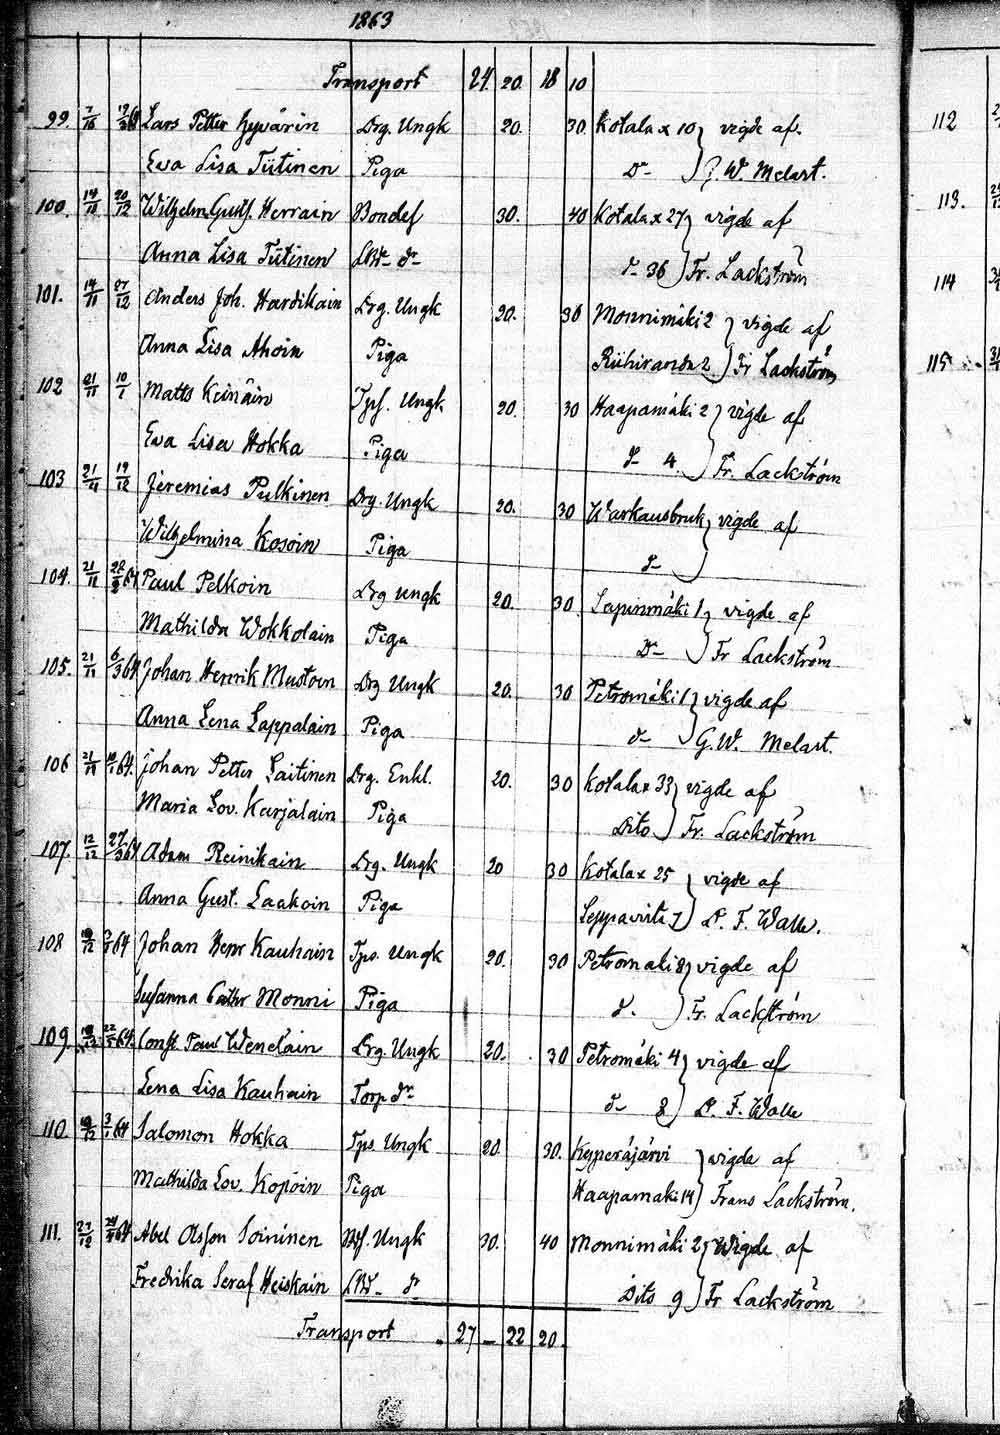 1863
Transport 24 20. 18 10
99. 7/10 19/3 64 Lars Petter Hyvärin Drg. Ungk 20. 30. Kotalax 10 vigde af.
Ewa Lisa Tiitinen Piga Do G. W. Melart.
100. 14/11 20/12 Wilhelm Gust. Herrain Bondes. 30. 40 Kotalax 27 vigde af
Anna Lisa Tiitinen dr d- 36 Fr. Lackström
101. 14/11 27/12 Anders Joh. Hardikain Drg. Ungk 20. 30 Monnimäki 2 vigde af
Anna Lisa Ahoin Piga Riihiranda 2 Fr Lackström
102 21/11 10/1 Matts Keinäin Tps. Ungk 20. 30 Haapamäki 2 vigde af
Ewa Lisa Hokka Piga d- 4 Fr. Lackström
103 21/11 19/12 Jeremias Pulkinen Drg. Ungk 20. 30 Warkausbruk vigde af
Wilhelmina Kosoin Piga d-
104. 21/11 28/2 64 Paul Pelkoin Drg Ungk 20. 30. Sapinmäki 1 vigde af
Mathilda Wokkolain Piga Do Fr Lackström
105. 21/11 6/3 64 Johan Henrik Mustoin Drg Ungk 20. 30 Petromäki 1 vigde af
Anna Lena Lappalain Piga d- G. W. Melart.
106 21/11 10/1 64. Johan Petter Laitinen Drg. Enkl. 20. 30 Kotalax 33 vigde af
Maria Lov. Karjalain Piga Dito Fr. Lackström
107. 12/12 27/3 64 Adam Reinikain Drg. Ungk 20 30 Kotalax 25 vigde af
Anna Gust. Laakoin Piga Leppävirta 7 D. F. Walle.
108 64 Johan Henr Kauhain Tps. Ungk 20. 30 Petromäki 8 vigde af
Susanna Cathr Monni Piga d. Fr. Lackström
109. 64. Const. Paul Wenelain Drg. Ungk 20. 30 Petromäki 4 vigde af
Lena Lisa Kauhain Torp dr d- 8 D. F. Walle
110. 3/1 64 Salomon Hokka Tps. Ungk 20. 30. Kyperäjärvi vigde af
Mathilda Lov. Kopoin Piga Haapamäki 14 Frans Lackström.
111. 27/12 64 Abel Olsson Soininen Ungk 30. 40 Monnimäki 2 Wigde af
Fredrika Seraf Heiskain dr Dito 9 Fr Lackström
Transport 27 – 22 20.
112
113.
114
115